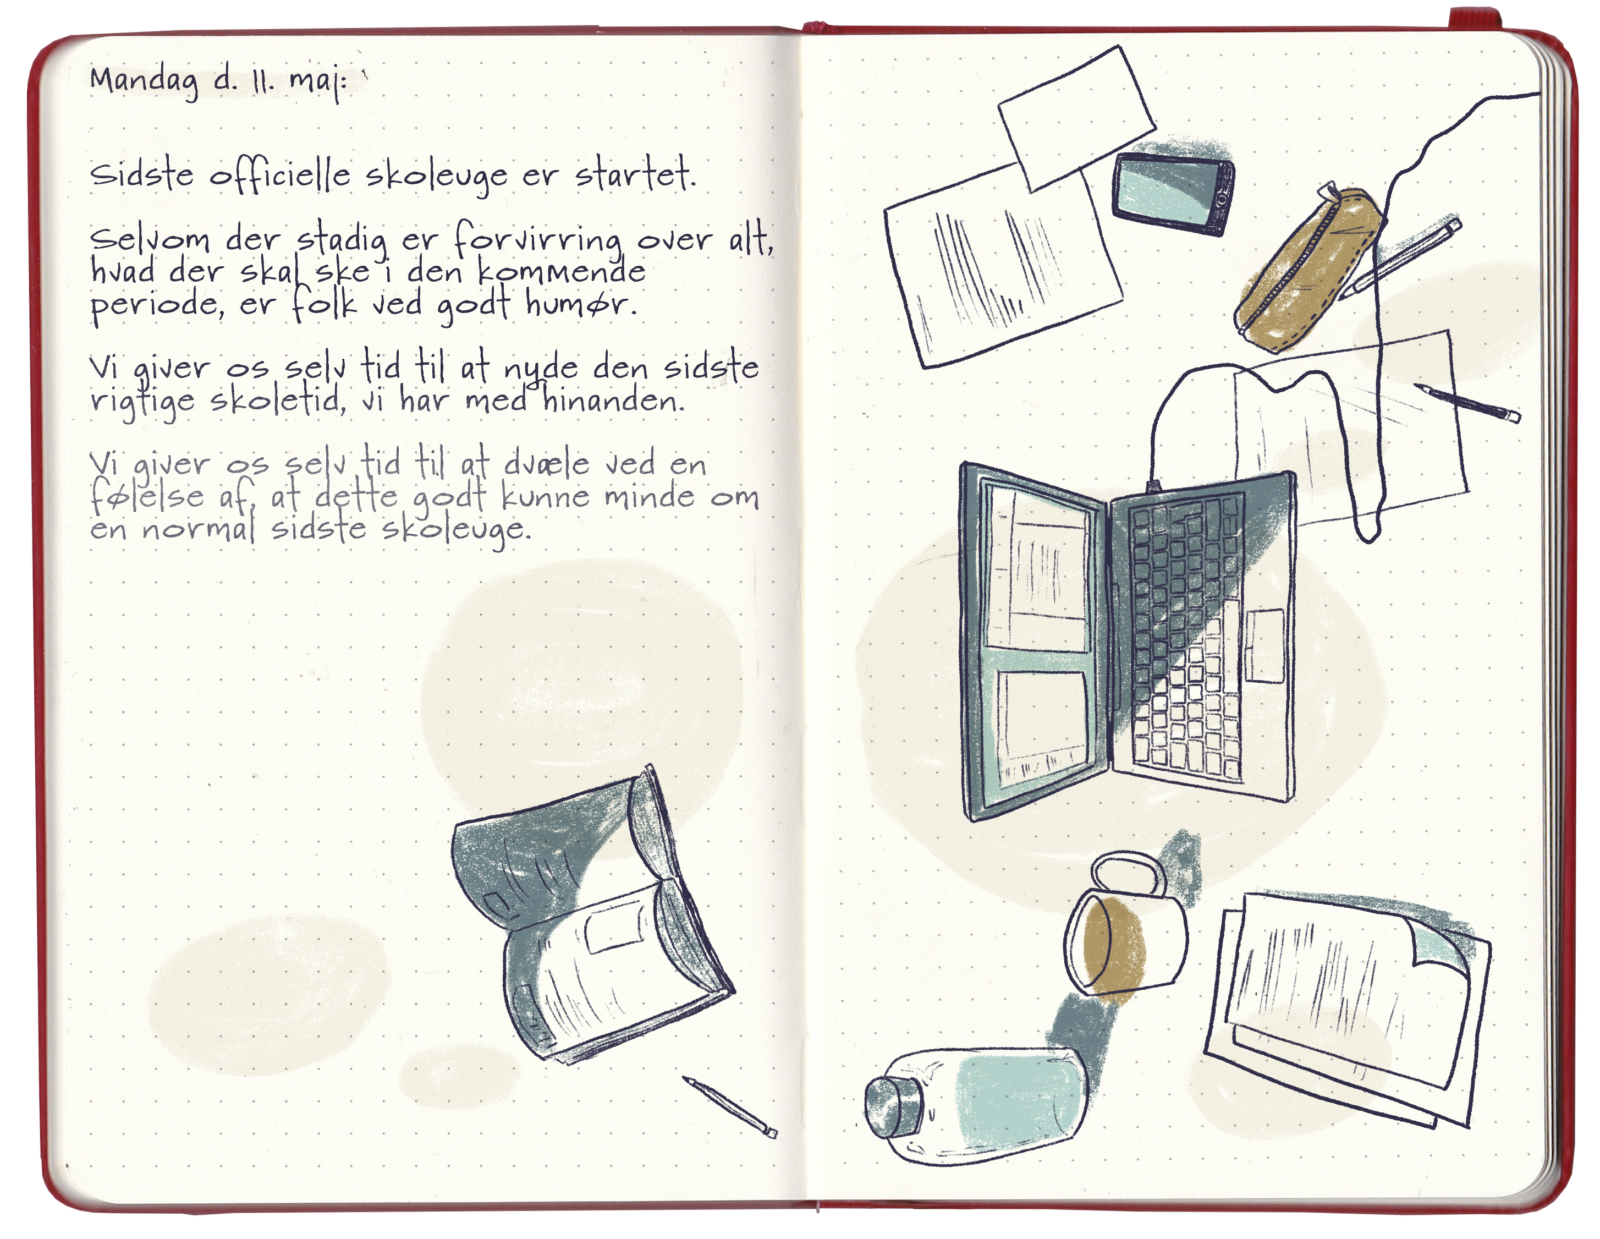 Mandag d. 11. maj:
Sidste officielle skoleuge er startet.
Selvom der stadig er forvirring over alt,
hvad der skal ske i den kommende
periode, er folk ved godt humør.
Vi giver os selv tid til at nyde den sidste
rigtige skoletid, vi har med hinanden.
Vi giver os selv tid til at dvæle ved en
følelse af, at dette godt kunne minde om
en normal sidste skoleuge.